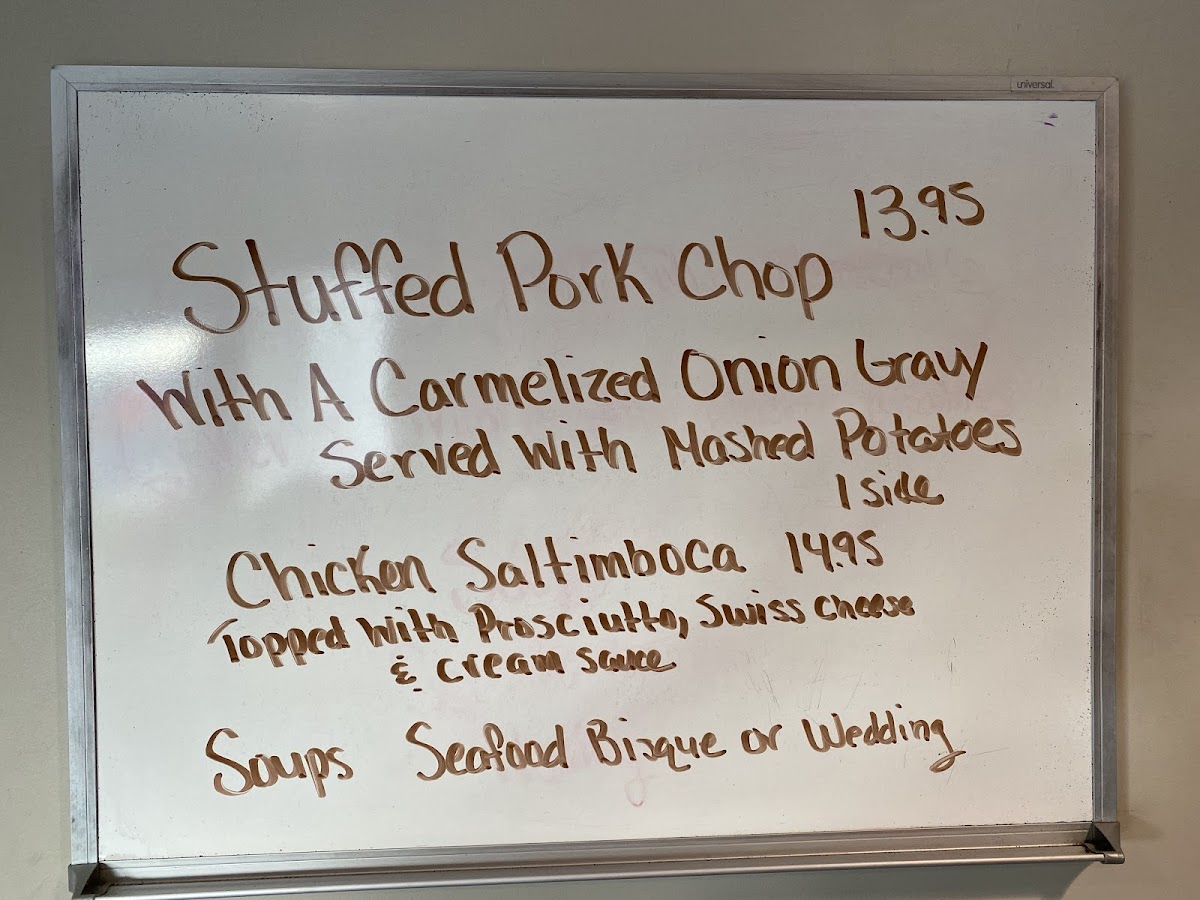 universal
13.95
Stuffed Pork Chop
With A Carmelized Onion Gravy
Served With Mashed Potatoes
1 side
Chicken Saltimboca 14.95
Topped With Prosciutto, Swiss Cheese
& Cream Sauce
Soups Seafood Bisque or Wedding